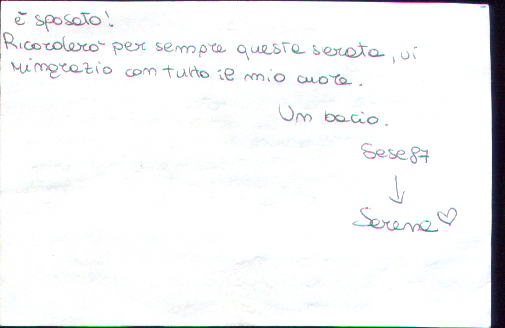 è sposato!
Ricorderò per sempre questa serata, vi
ringrazio con tutto il mio cuore.
Un bacio.
Sese87
↓
Serena♡